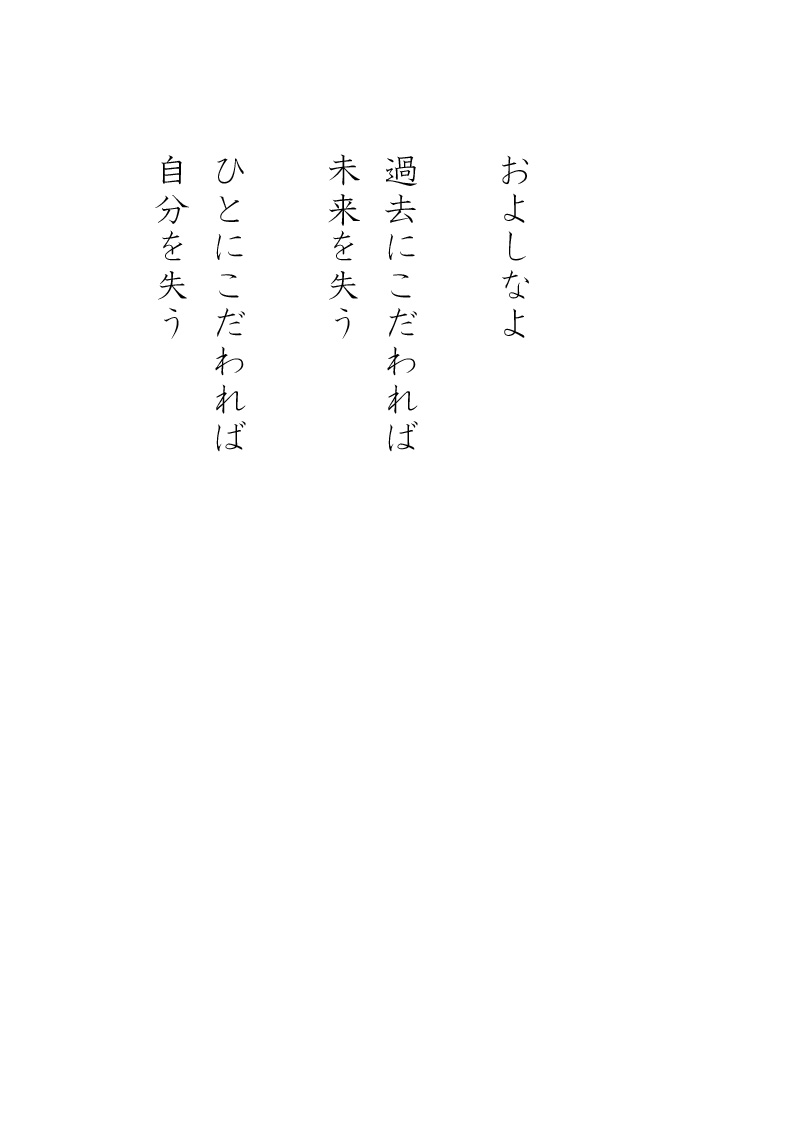 およしなよ
過去にこだわれば
未来を失う
ひとにこだわれば
自分を失う